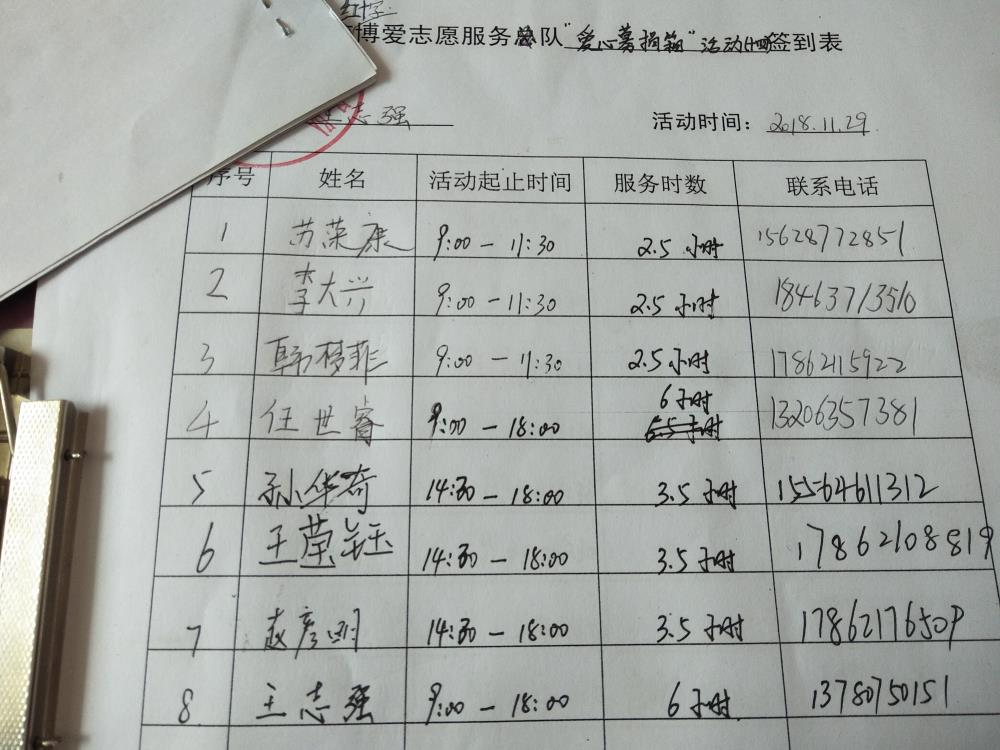 红十字
博爱志愿服务总队"爱心募捐箱"活动(十四)签到表
王志强 活动时间: 2018.11.29
序号 姓名 活动起止时间 服务时数 联系电话
1 苏荣康 9:00 - 11:30 2.5 小时 15628772851
2 李大兴 9:00 - 11:30 2.5 小时 18463713510
3 韩梦菲 9:00 - 11:30 2.5 小时 17862115922
6 小时
4 任世睿 9:00 - 18:00 13206357381
5 孙华奇 14:30 - 18:00 3.5 小时 15564611312
6 王莹钰 14:30 - 18:00 3.5 小时 17862108819
7 赵彦明 14:30 - 18:00 3.5 小时 1786217650P
8 王志强 9:00 - 18:00 6 小时 13780750151